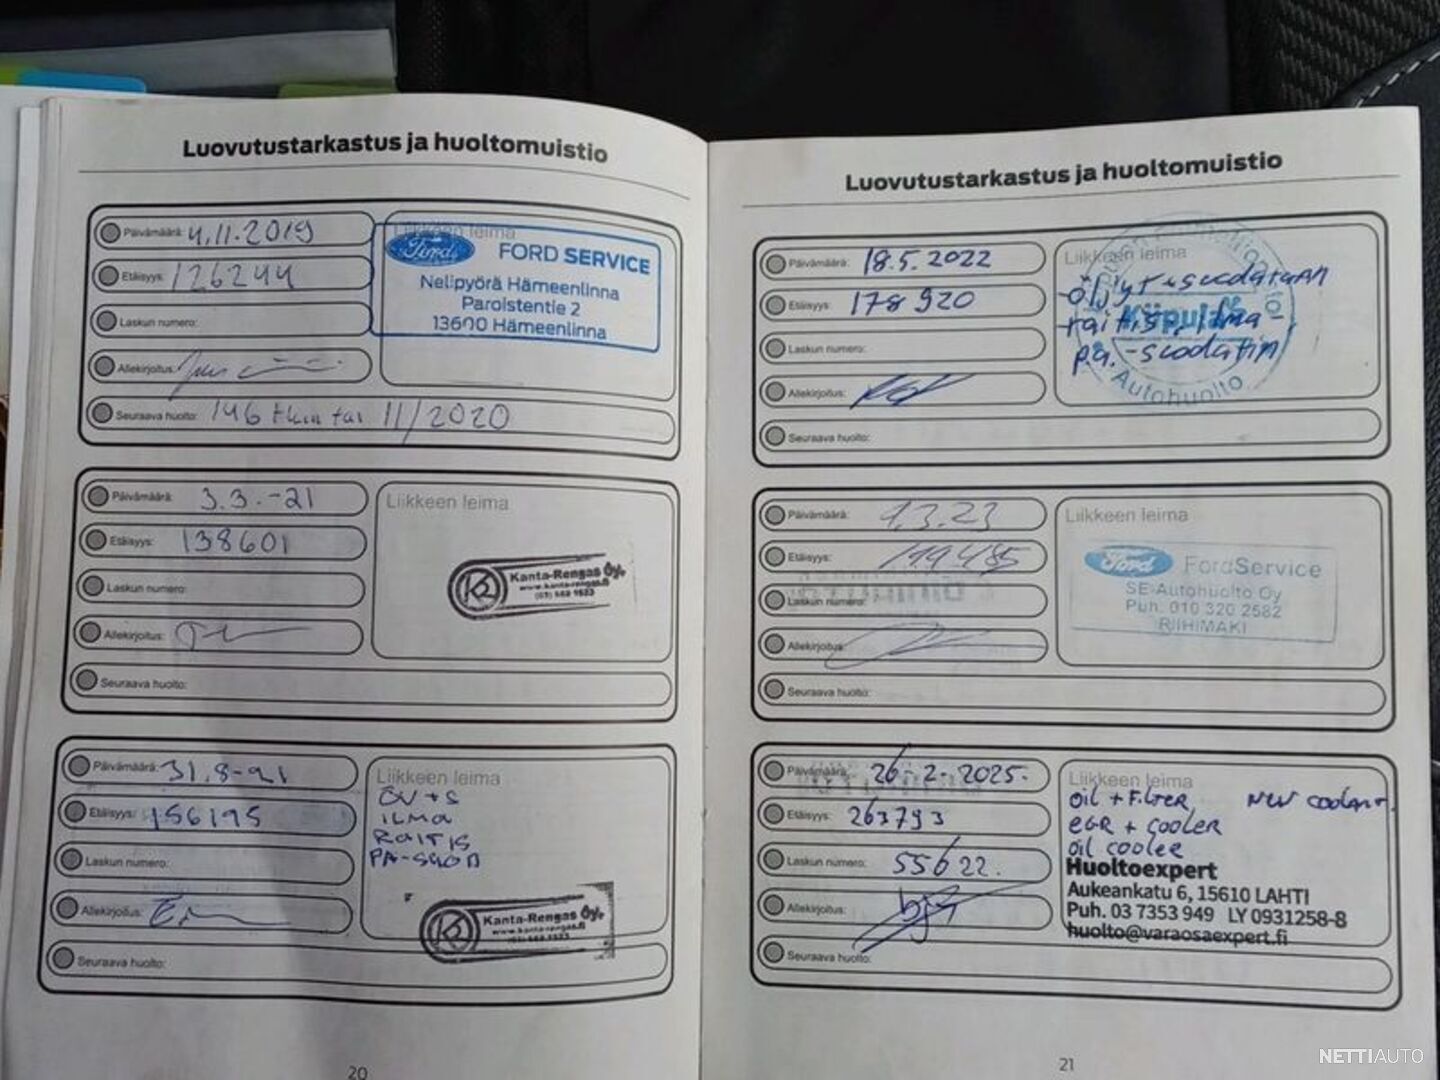 Luovutustarkastus ja huoltomuistio
Päivämäärä: 4.11.2019
Etäisyys: 126244
Laskun numero:
Allekirjoitus:
Seuraava huolto: 146 tkm tai 11/2020
Liikkeen leima
Ford FORD SERVICE
Nelipyörä Hämeenlinna
Paroistentie 2
13600 Hämeenlinna
Päivämäärä: 3.3.-21
Etäisyys: 138601
Laskun numero:
Allekirjoitus:
Seuraava huolto:
Liikkeen leima
Kanta-Rengas Oy.
www.kanta-rengas.fi
Päivämäärä: 31.8-21
Etäisyys: 156195
Laskun numero:
Allekirjoitus:
Seuraava huolto:
Liikkeen leima
ÖV+S
ILMA
RAITIS
PA-SUOD
Kanta-Rengas Oy.
www.kanta-rengas.fi
20
Luovutustarkastus ja huoltomuistio
Päivämäärä: 18.5.2022
Etäisyys: 178920
Laskun numero:
Allekirjoitus:
Seuraava huolto:
Liikkeen leima
öljyt+suodatin
raitis. ilma-
pa.-suodatin
Kiipula
Autohuolto
Päivämäärä: 1.3.23
Etäisyys:
Laskun numero:
Allekirjoitus:
Seuraava huolto:
Liikkeen leima
Ford FordService
SE-Autohuolto Oy
Puh. 010 320 2582
RIIHIMÄKI
Päivämäärä: 26-2-2025.
Etäisyys: 263793
Laskun numero: 55622.
Allekirjoitus:
Seuraava huolto:
Liikkeen leima
oil + Filter NEW coolant.
EGR + cooler
oil cooler
Huoltoexpert
Aukeankatu 6, 15610 LAHTI
Puh. 03 7353 949 LY 0931258-8
huolto@varaosaexpert.fi
21
NETTIAUTO